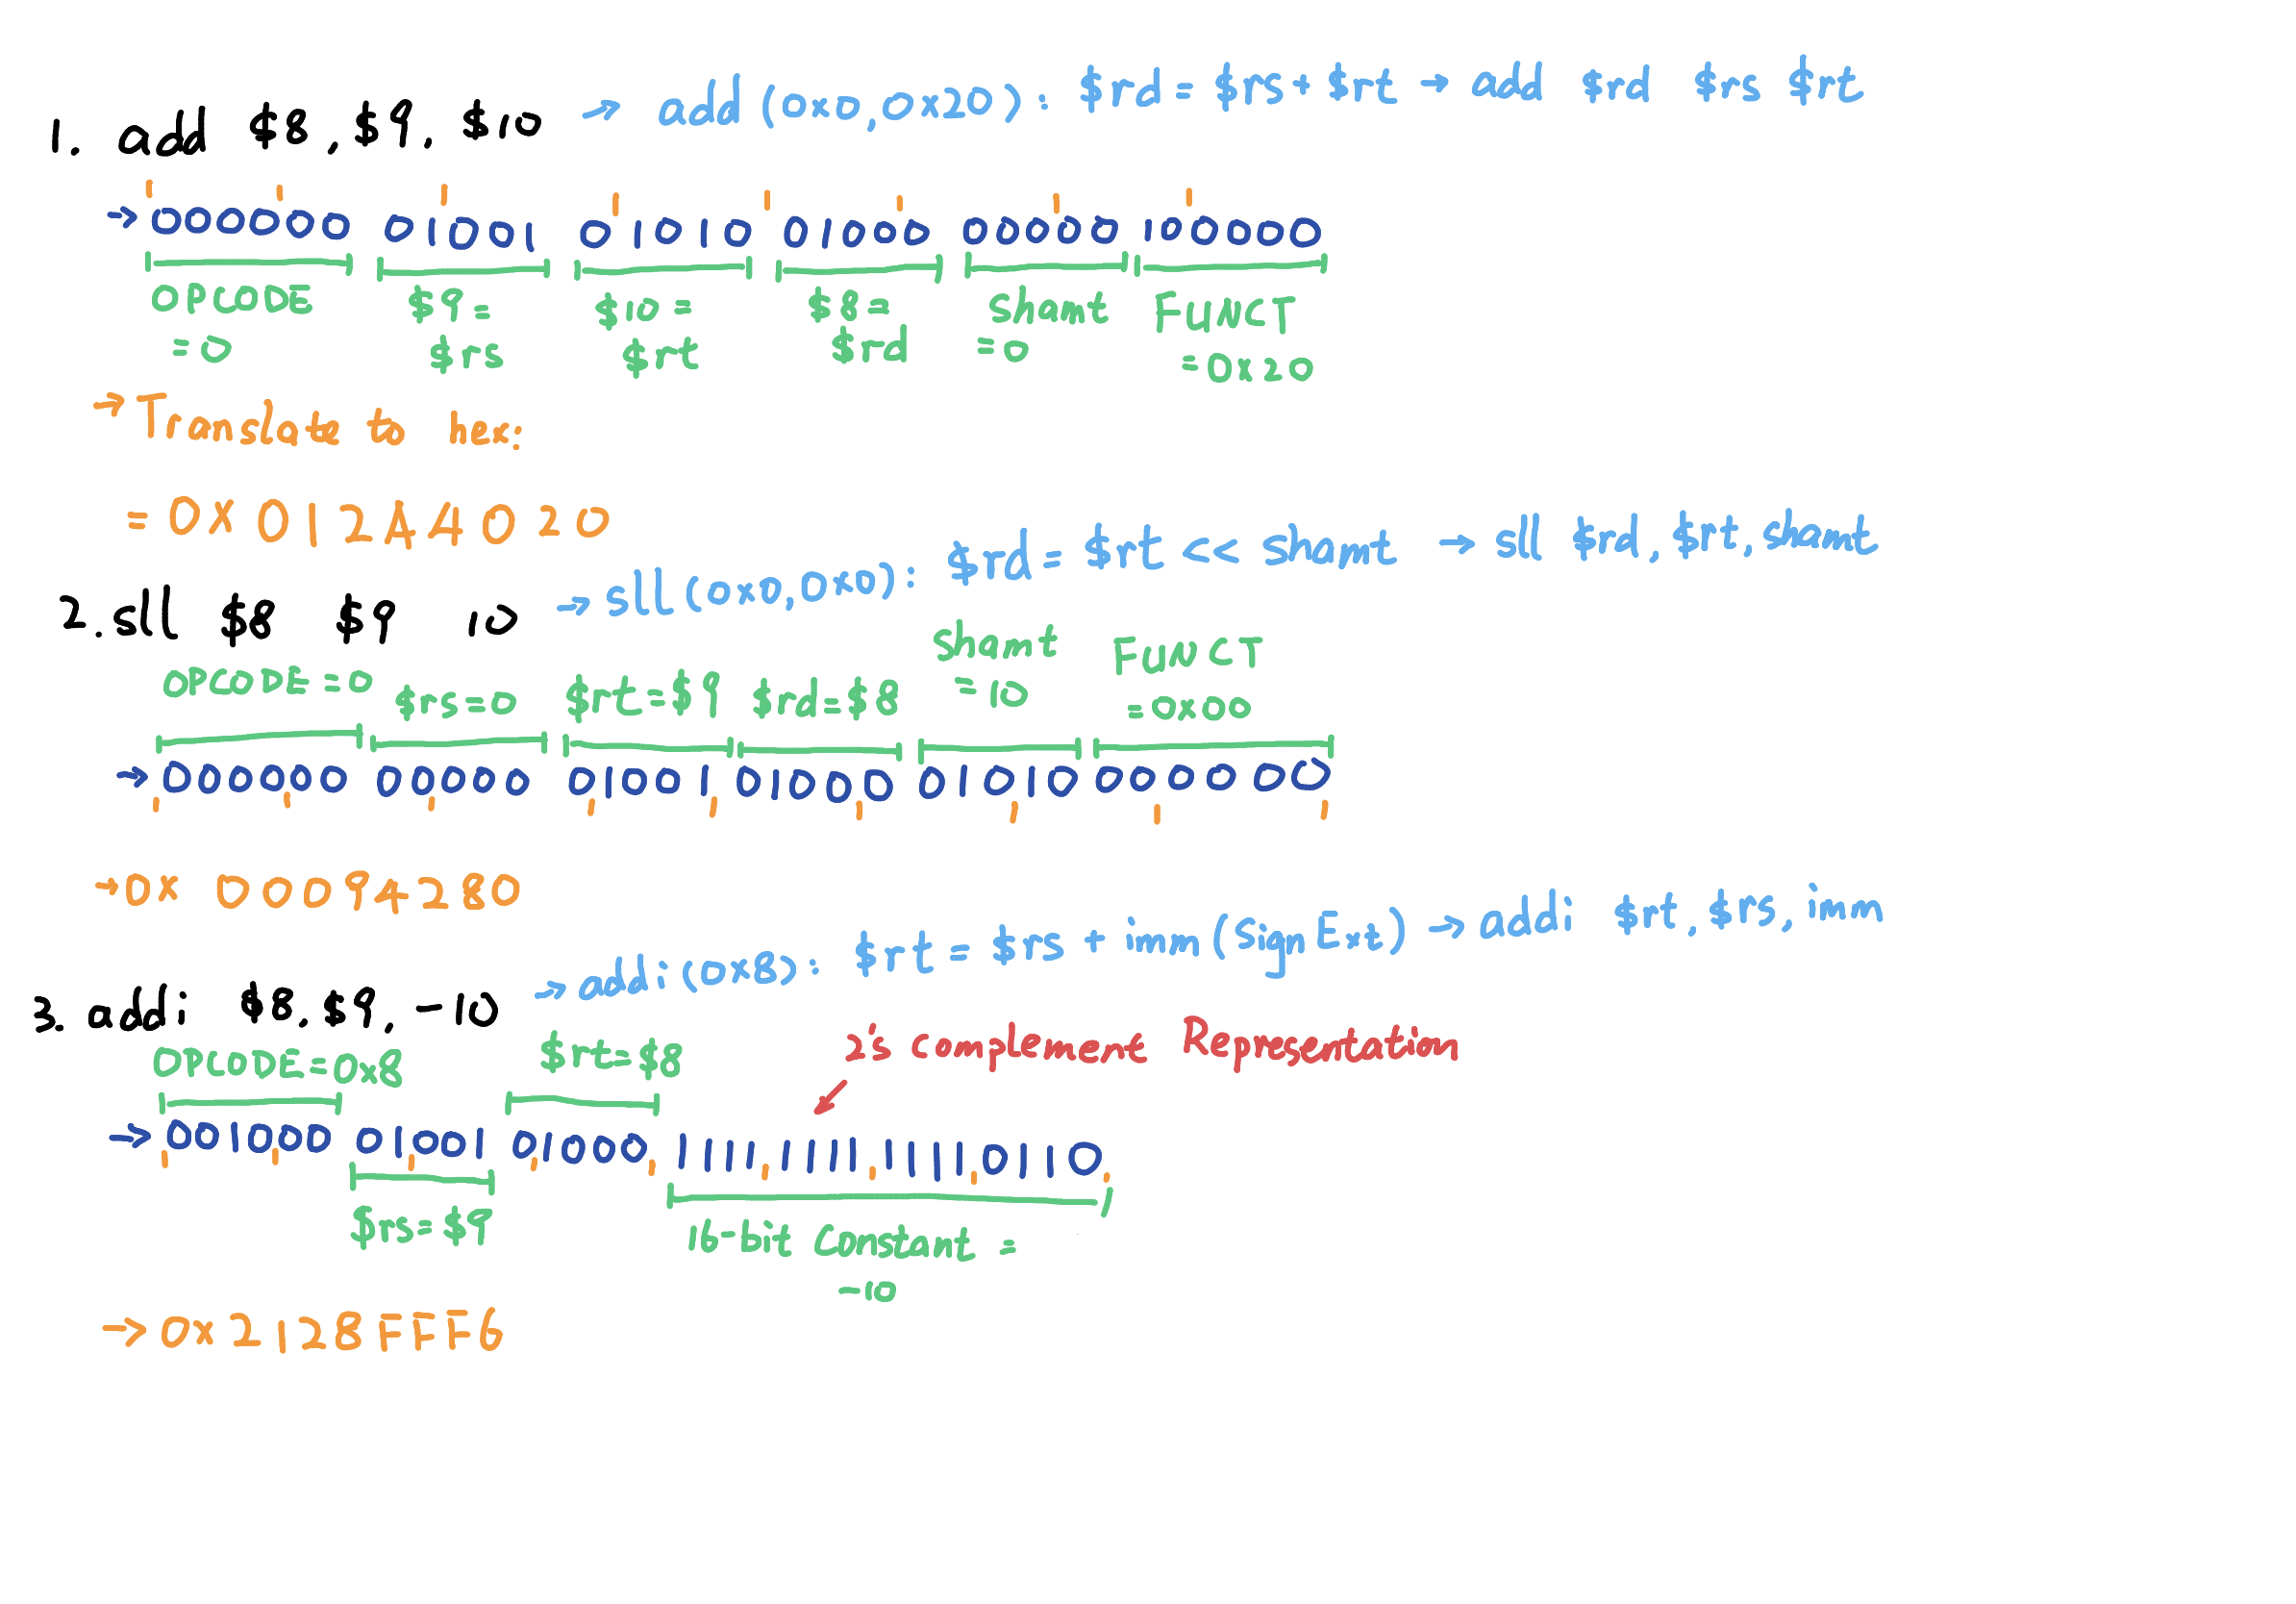 1. add $8, $9, $10 → add (0x0, 0x20): $rd = $rs + $rt → add $rd $rs $rt
→ 000000 01001 01010 01000 00000 100000
OPCODE =0 $9= $rs $10= $rt $8= $rd shamt =0 FUNCT =0x20
→ Translate to hex:
= 0X012A4020
2. sll $8 $9 10 → sll (0x0, 0x0): $rd = $rt << shamt → sll $rd, $rt, shamt
OPCODE=0 $rs=0 $rt=$9 $rd=$8 shamt =10 FUNCT =0x00
→ 000000 00000 01001 01000 01010 000000
→ 0x 00094280
3. addi $8, $9, -10 → addi (0x8): $rt = $rs + imm (SignExt) → addi $rt, $rs, imm
OPCODE=0x8 $rt=$8 2's complement Representation
→ 001000 01001 01000 1111 1111 1111 0110
$rs=$9 16-bit Constant = -10
→ 0x2128FFF6